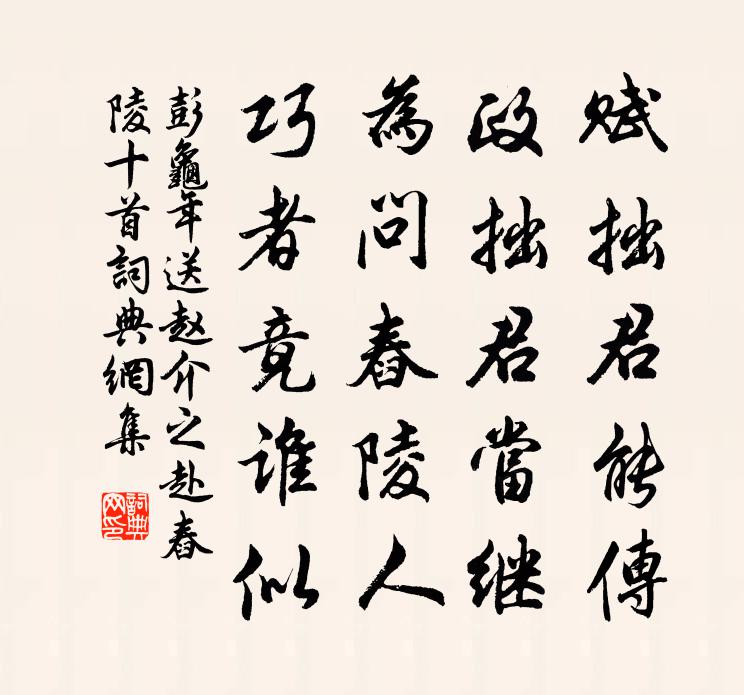 賦拙君能傳
政拙君當继
為問舂陵人
巧者竟谁似
彭龜年送赵介之赴舂
陵十首詞典網集
詞典
网印